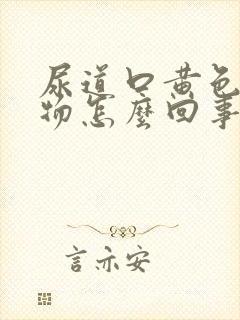 尿道口黄色
物怎麼回事
言亦安